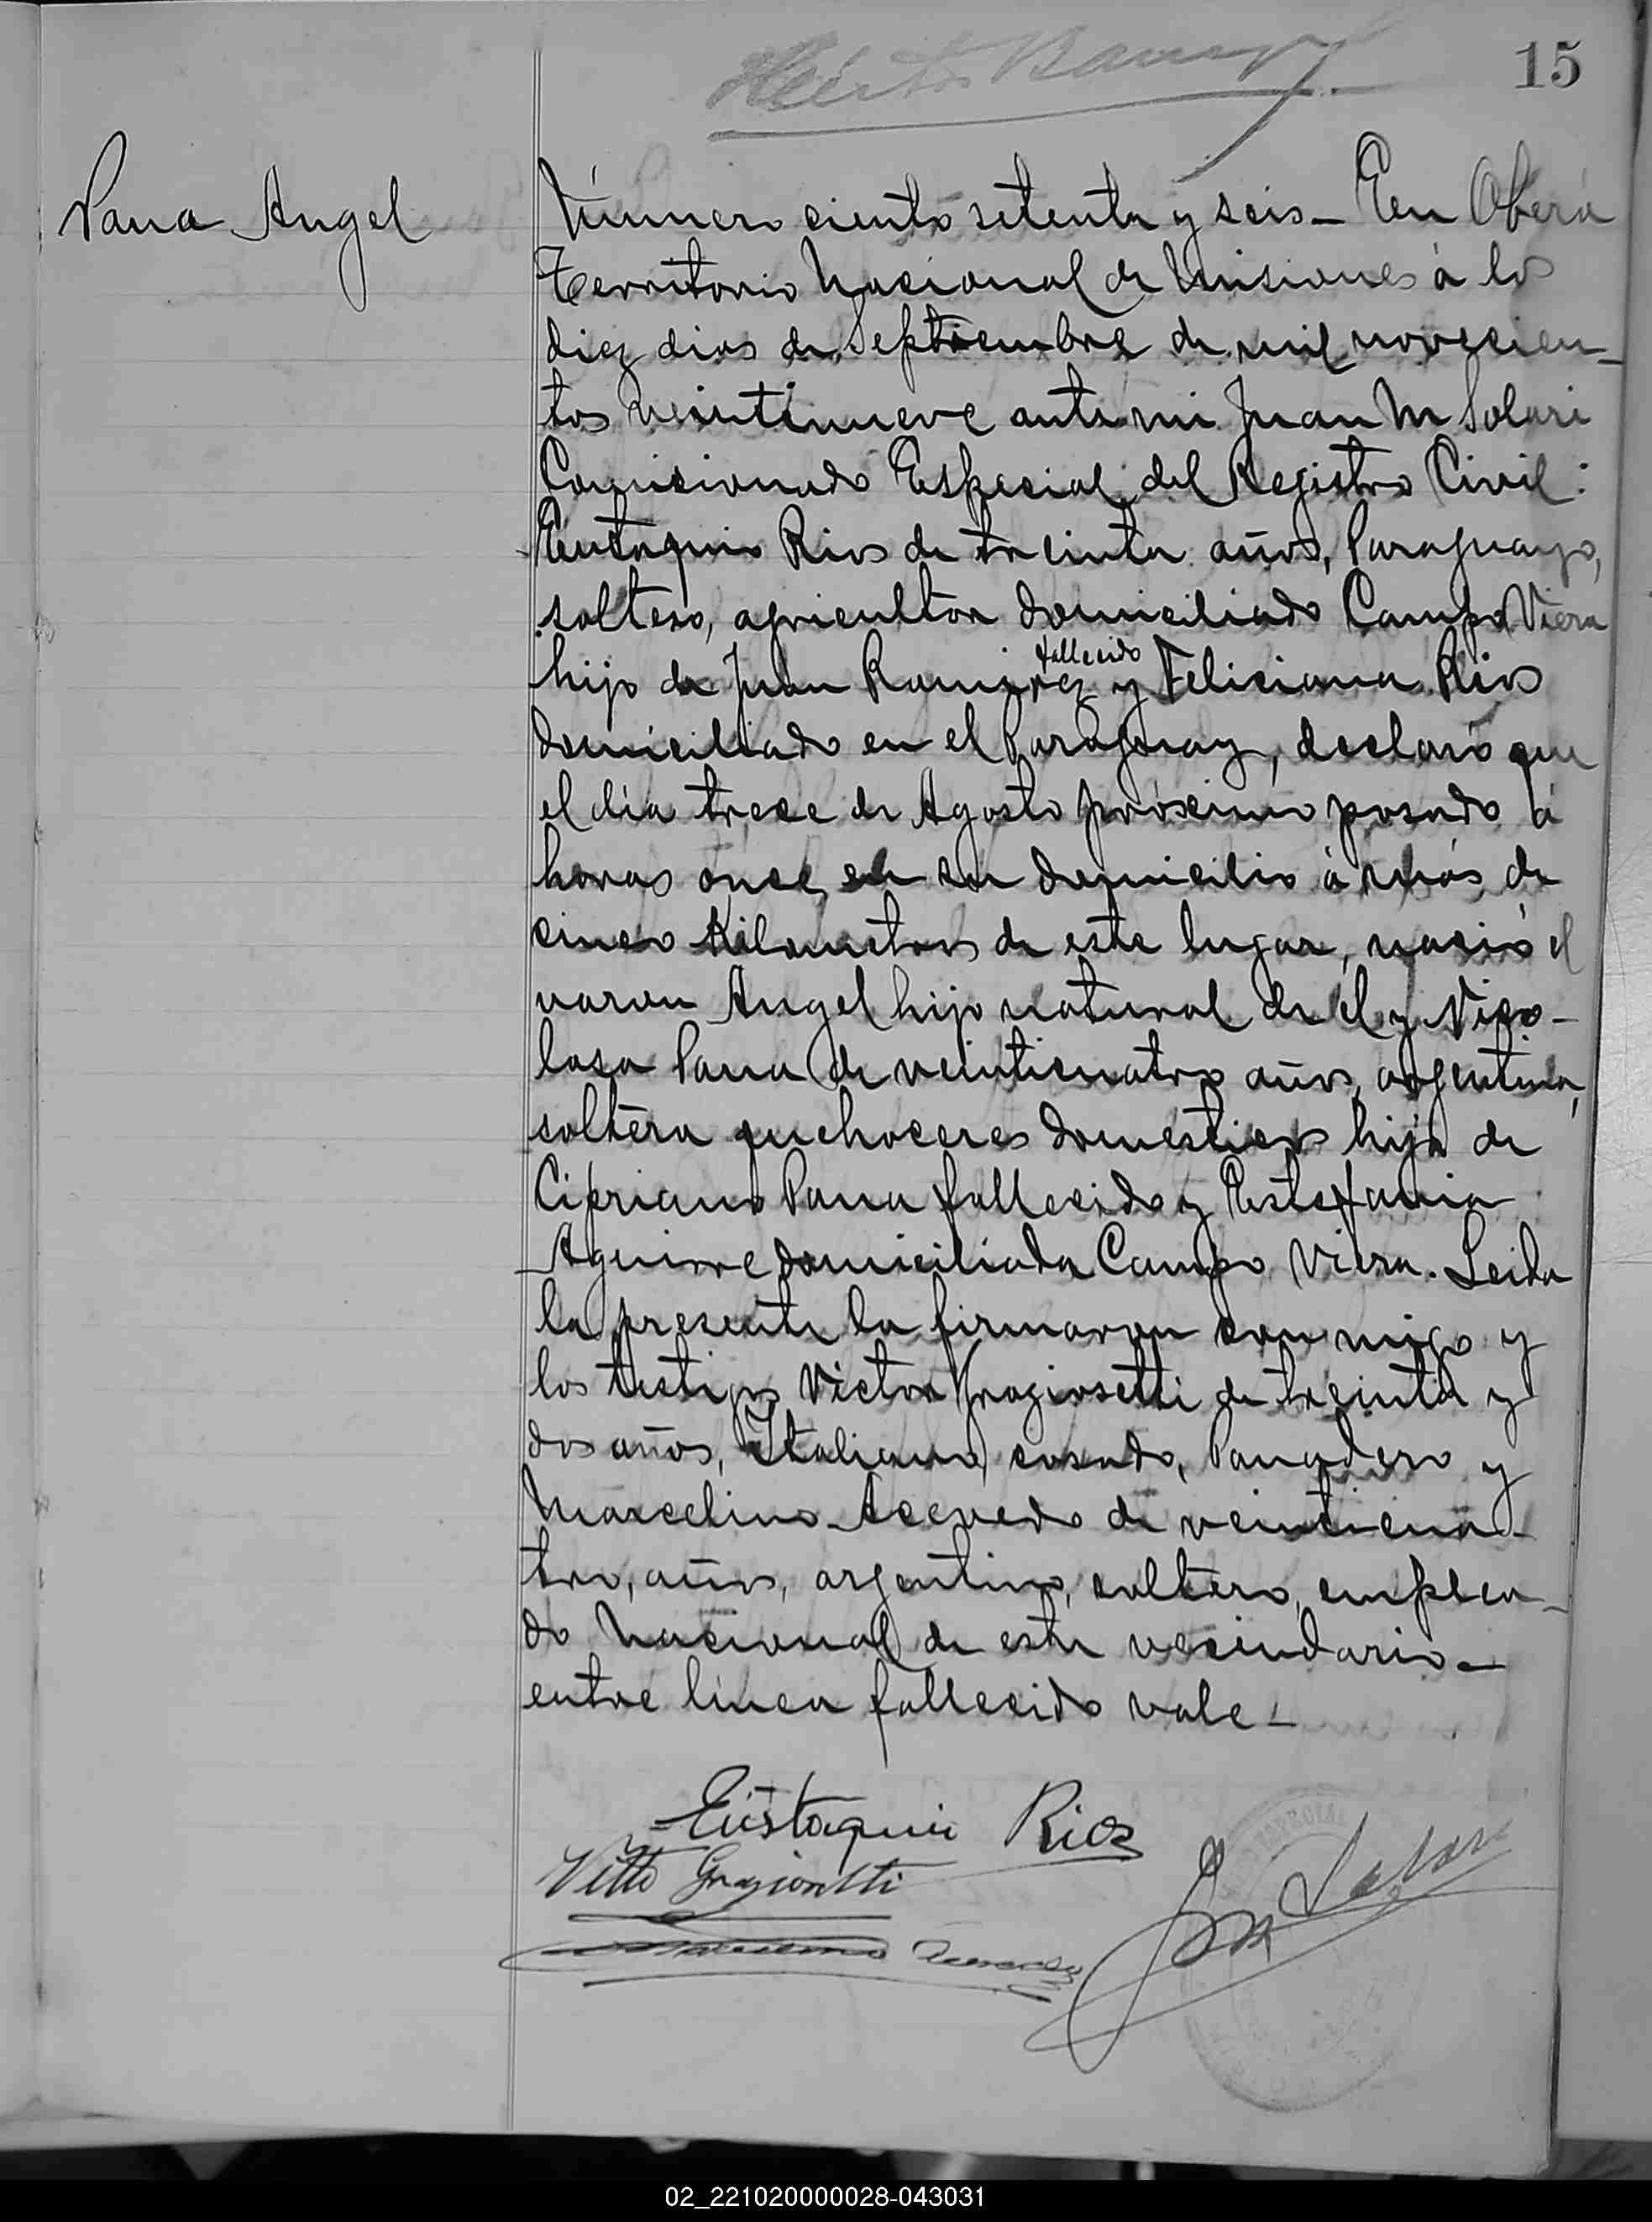 15
Pana Angel
Número ciento setenta y seis_ En Oberá
Territorio Nacional de Misiones á los
diez dias de Septiembre de mil novecien_
tos veintinueve ante mi Juan M Solari
Comisionado Especial del Registro Civil:
Eustaquio Rios de treinta años, Paraguayo,
soltero, agricultor domiciliado Campo Viera
hijo de Juan Ramirez fallecido y Feliciana Rios
domiciliado en el Paraguay, declaró que
el día trece de Agosto próximo pasado á
horas once, en su domicilio á más de
cinco Kilometros de este lugar, nació el
varon Angel hijo natural de él y
Pana de veinticuatro años, argentina,
soltera quehaceres domesticos hija de
Cipriano Pana fallecido y Estefania
Aguirre domiciliada Campo Viera. Leida
la presente la firmaron con migo y
los testigos Victor Graziosetti de treinta y
dos años, Italiano, casado, Panadero y
Marcelino Acevedo de veinticua_
tro, años, argentino, soltero, emplea_
do Nacional de este vecindario_
entre línea fallecido vale_
Eustaquio Rios
Vitto Graziosetti
Marcelino Acevedo
02_221020000028-043031